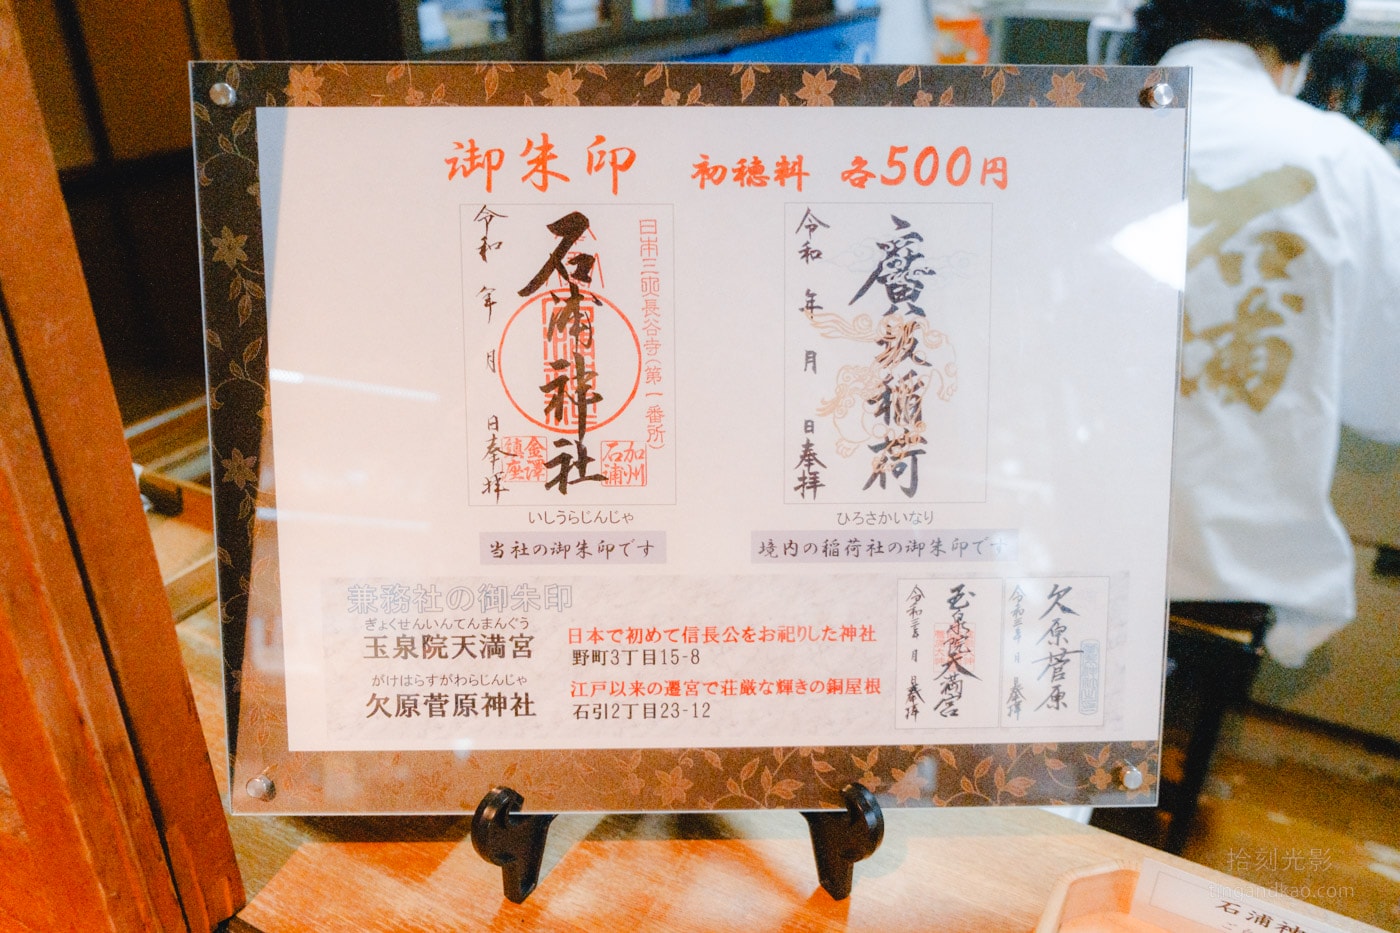 御朱印 初穂料 各500円
令和 年 月 日奉拝
石浦神社
日本三㚑長谷寺(第一番所)
加州石浦
金澤鎮座
いしうらじんじゃ
当社の御朱印です
令和 年 月 日奉拝
廣坂稲荷
ひろさかいなり
境内の稲荷社の御朱印です
兼務社の御朱印
ぎょくせんいんてんまんぐう
玉泉院天満宮
日本で初めて信長公をお祀りした神社
野町3丁目15-8
がけはらすがわらじんじゃ
欠原菅原神社
江戸以来の遷宮で荘厳な輝きの銅屋根
石引2丁目23-12
玉泉院天満宮
欠原菅原
石浦
拾刻光影
tingandkao.com
石浦神